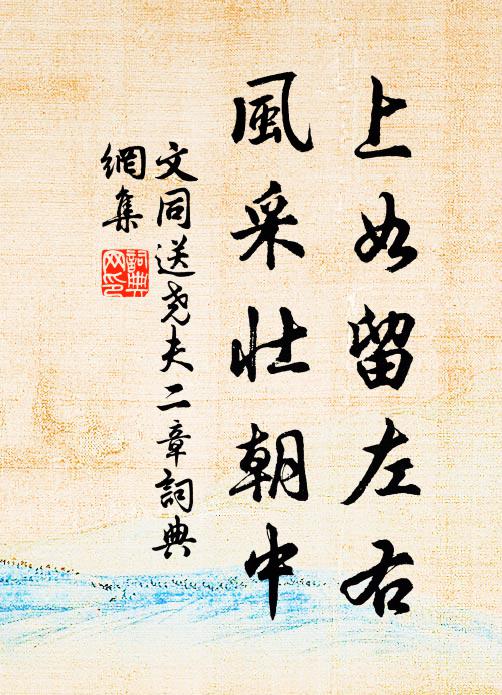 上如留左右
風采壯朝中
文同送尧夫二章詞典
網集
詞典
网印